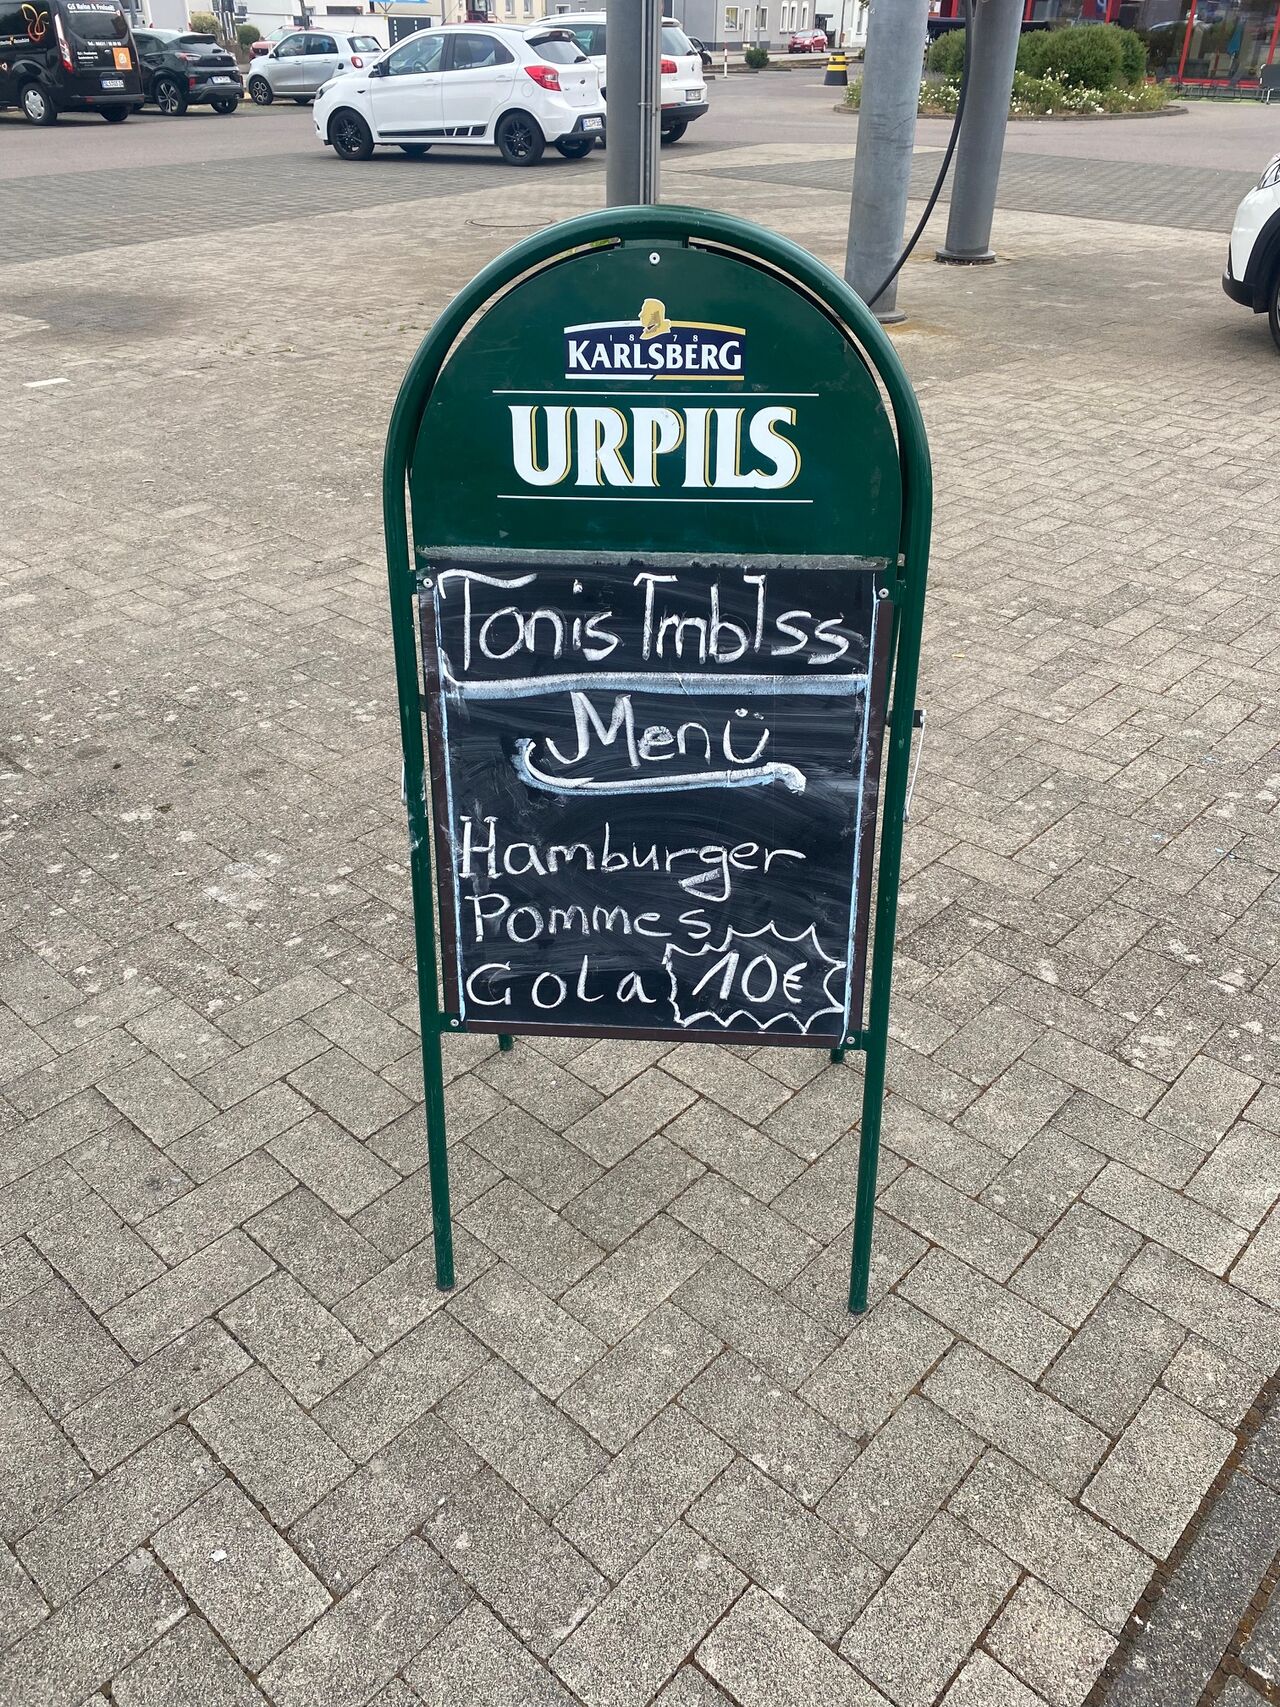 1878
KARLSBERG
URPILS
Tonis ImbIss
Menü
Hamburger
Pommes
Cola 10€